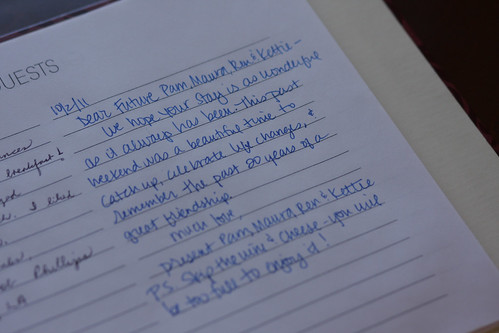 UESTS
10/2/11
Dear Future Pam, Maura, Ron & Kettie-
We hope your stay is as wonderful
as it always has been. This past
weekend was a beautiful time to
catch up, celebrate life changes, &
remember the past 20 years of a
great friendship.
much love,
present Pam, Maura, Ron & Kettie
P.S. Skip the wine & cheese - you will
be too full to enjoy it!
breakfast &
I liked
Phillips
LA